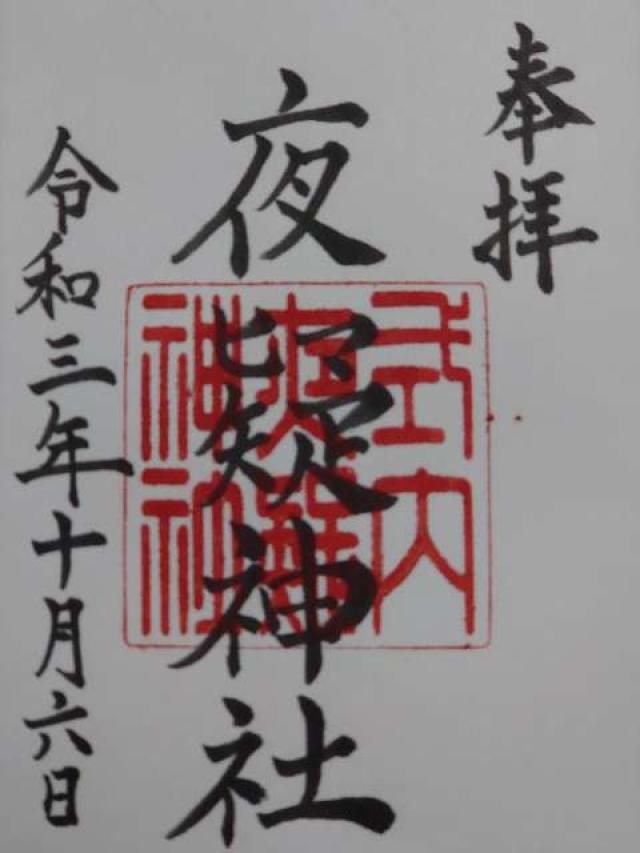 奉拝
夜疑神社
式内
夜疑
神社
令和三年十月六日